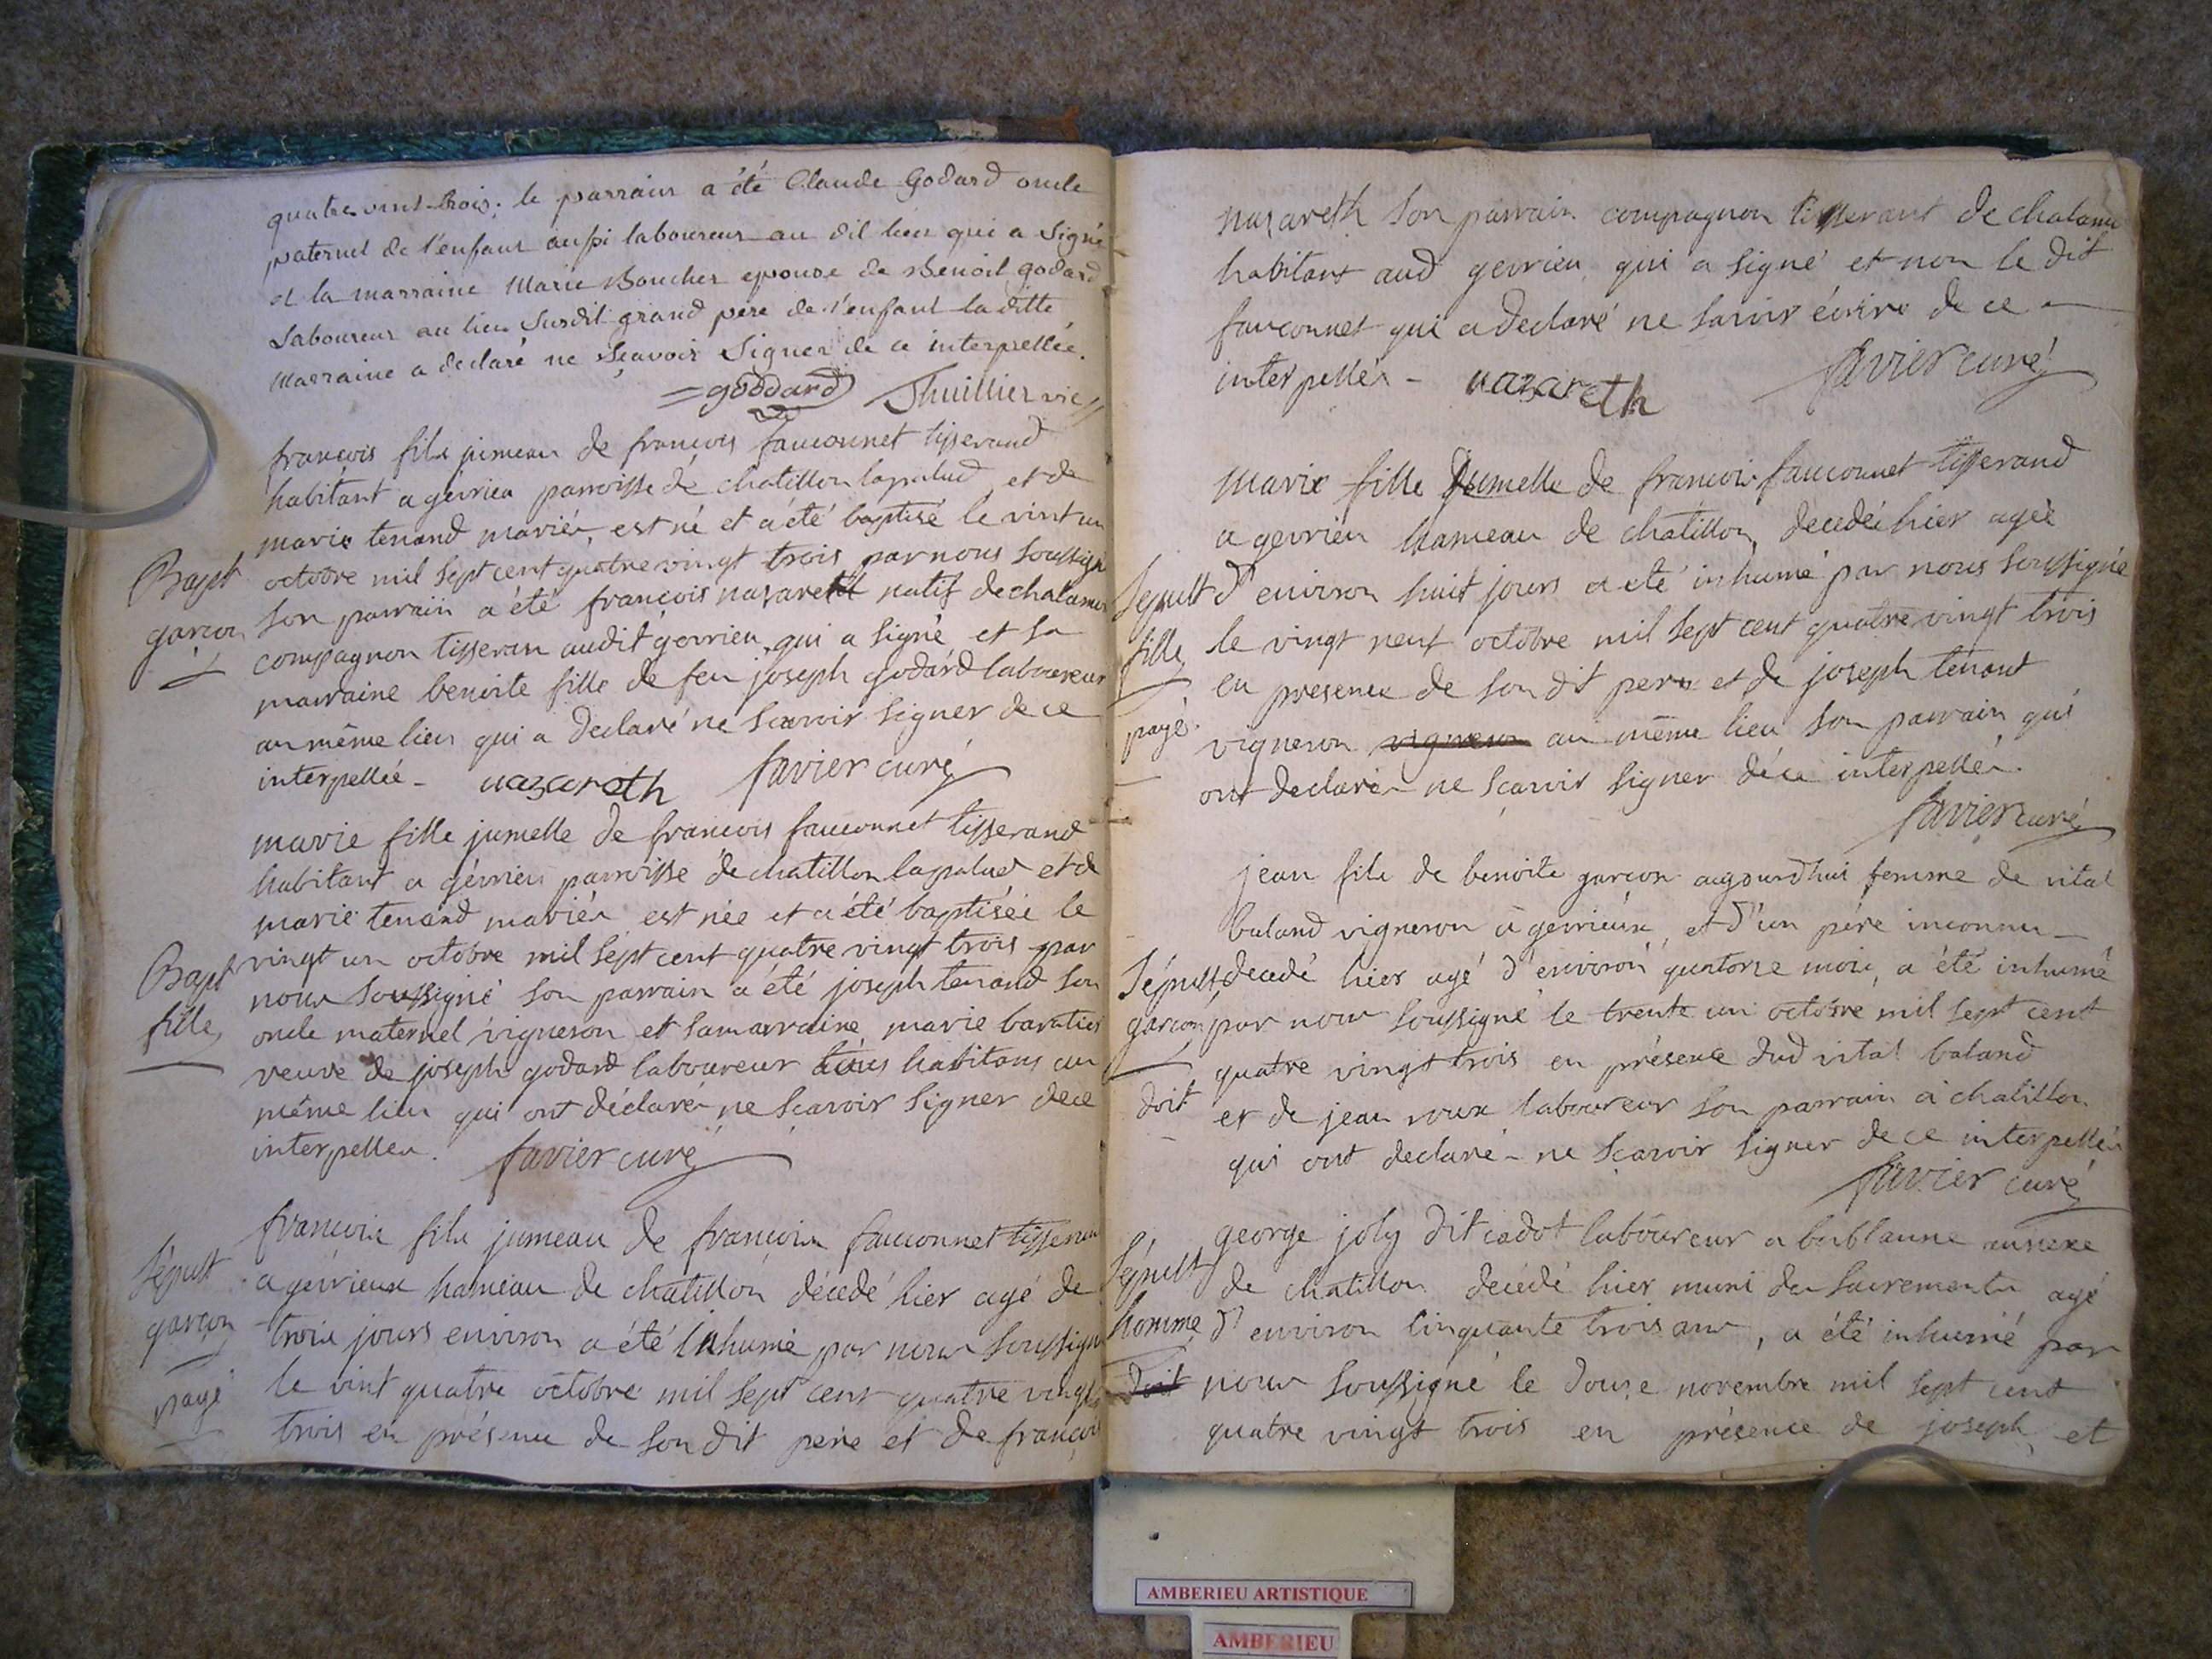 quatre vint-trois; le parrain a été Claude Godard oncle
paternel de l'enfant aussi laboureur au dit lieu qui a signé
et la marraine Marie Boucher epouse de Benoit godard
Laboureur au lieu susdit grand pere de l'enfant la ditte
Marraine a declaré ne sçavoir Signer de ce interpellée.
goddard Thuillier vic
françois fils jumeau de françois fauconnet tisserand
habitant a gévrieu parroisse de chatillon lapalud et de
marie tenand mariés, est né et a été baptisé le vint un
Bapt
octobre mil sept cent quatre vingt trois par nous soussigné
garcon
son parrain a été françois nazareth natif de chalamon
compagnon tisseran audit gevrieu, qui a signé et sa
marraine benoite fille de feu joseph godard laboureur
au même lieu qui a declaré ne scavoir signer de ce
interpellée - nazareth favier curé
marie fille jumelle de francois fauconnet tisserand
habitant a gévrieu parroisse de chatillon lapalud et de
marie tenand mariés est née et a été baptisée le
Bapt
vingt un octobre mil sept cent quatre vingt trois par
nous soussigné son parrain a été joseph tenand son
fille
oncle maternel vigneron et sa marraine marie baratier
veuve de joseph godard laboureur tous habitans au
même lieu qui ont déclarés ne sçavoir signer de ce
interpellés. favier curé
francois fils jumeau de francois fauconnet tisserand
Sépult
a gévrieux hameau de chatillon décedé hier agé de
garçon
trois jours environ a été inhumé par nous soussigné
payé
le vint quatre octobre mil sept cent quatre vingt
trois en présence de son dit pere et de françois
nazareth son parrain compagnon tisserant de chalamon
habitant aud gevrieu qui a signé et non le dit
fauconnet qui a declaré ne savoir écrire de ce
interpellés - nazareth favier curé
marie fille jumelle de francois fauconnet tisserand
a gevrieu hameau de chatillon, decedée hier agée
Sepult
d'environ huit jours a été inhumé par nous soussigné
fille
le vingt neuf octobre mil sept cent quatre vingt trois
en presence de son dit pere et de joseph tenant
payé
vigneron vigneron au même lieu son parrain qui
ont declarés ne scavoir signer de ce interpellés.
favier curé
jean fils de benoite garcon aujourdhui femme de vital
baland vigneron à gevrieux, et d'un père inconnu
Sépult
decedé hier agé d'environ quatorze mois, a été inhumé
garcon
par nous soussigné le trente un octobre mil sept cent
quatre vingt trois en présence dud vital baland
doit
et de jean roux laboureur son parrain à chatillon
qui ont declaré ne scavoir signer de ce interpellés
favier curé
george joly dit cadot laboureur a bublanne annexe
Sépult
de chatillon decédé hier muni des sacrements agé
homme
d'environ cinquante trois ans, a été inhumé par
doit
nous soussigné le douze novembre mil sept cent
quatre vingt trois en présence de joseph et
AMBERIEU ARTISTIQUE
AMBERIEU